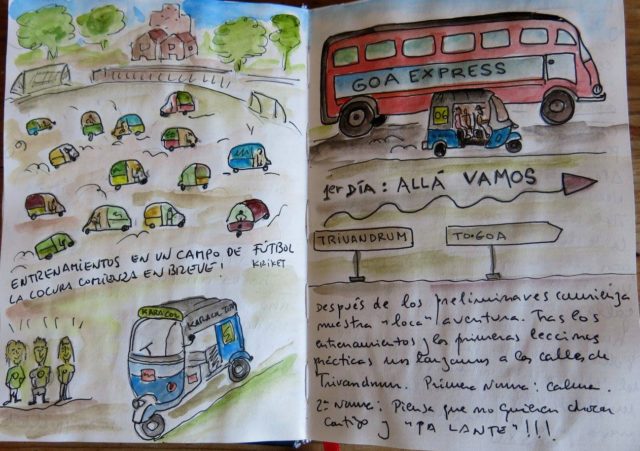 ENTRENAMIENTOS EN UN CAMPO DE FÚTBOL
KRIKET
LA LOCURA COMIENZA EN BREVE!
KARACOL
KARACOL TEAM
GOA EXPRESS
06
1er DÍA: ALLÁ VAMOS
TRIVANDRUM
TO-GOA
Después de los preliminares comienza
nuestra "loca" aventura. Tras los
entrenamientos y las primeras lecciones
prácticas nos lanzamos a las calles de
Trivandrum. Primera Norma: calma.
2ª Norma: Piensa que no quieren chocar
contigo y "PA LANTE"!!!